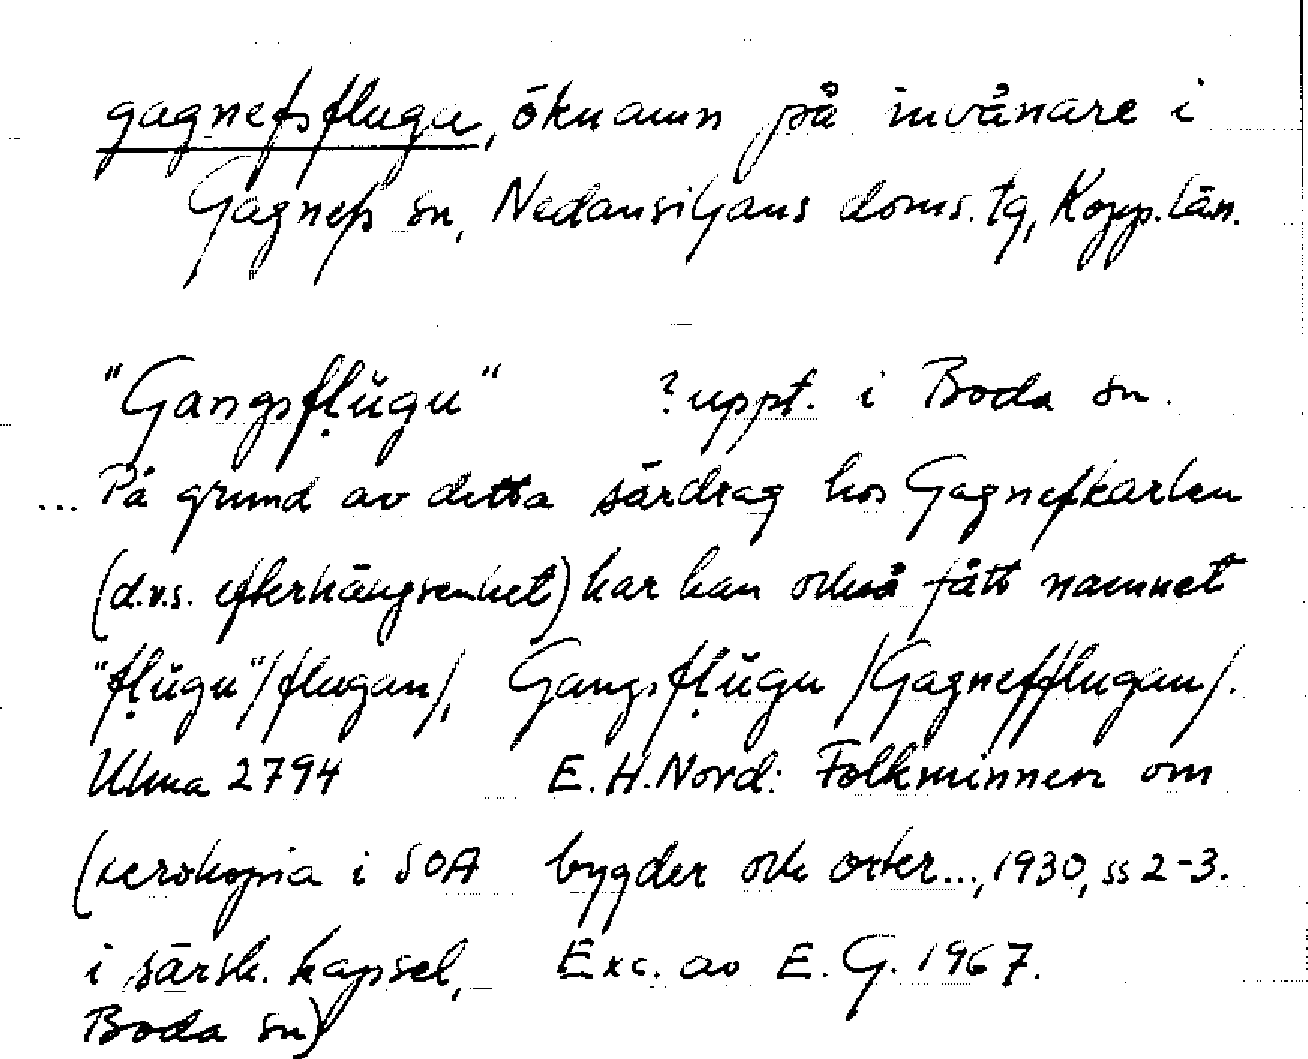 gagnefsfluga, öknamn på invånare i
Gagnefs sn, Nedansiljans doms. tg, Kopp. län.
"Gangsfḷŭgu" ? uppt. i Boda sn.
... På grund av detta särdrag hos Gagnefkarlen
(d.v.s. efterhängsenhet) har han också fått namnet
"fḷŭgu" /flugan/, Gangsfḷŭgu /Gagnefflugan/.
Ulma 2794 E. H. Nord: Folkminnen om
(xerokopia i SOA bygder och orter..., 1930, ss 2-3.
i särsk. kapsel, Exc. av E. G. 1967.
Boda sn)